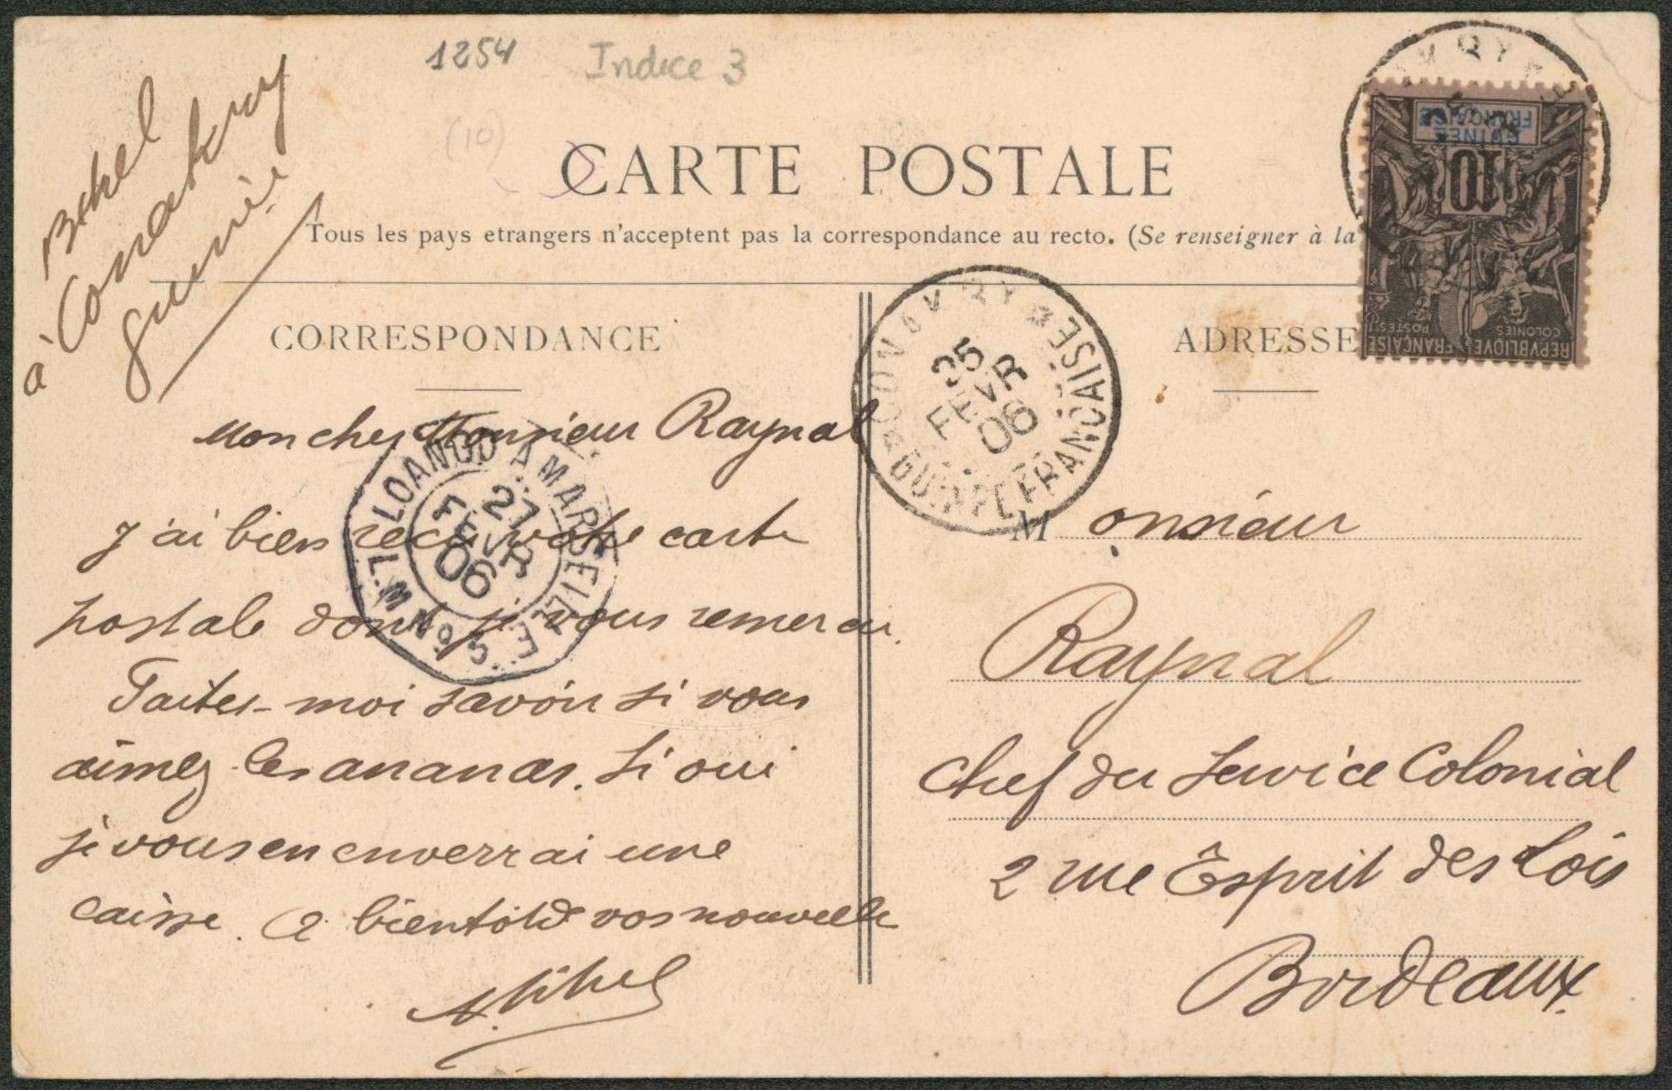 1254 Indice 3
(10)
à Conakry
Guinée
CARTE POSTALE
Tous les pays etrangers n'acceptent pas la correspondance au recto. (Se renseigner à la
CORRESPONDANCE
ADRESSE
GUINÉE
FRANÇAISE
10
COLONIES
POSTES
REPVBLIQVE FRANÇAISE
CONAKRY
25
FEVR
06
GUINÉE FRANÇAISE
LOANGO A MARSEILLE
27
FEVR
06
L.M. N° 5
Mon cher Monsieur Raynal
J'ai bien reçu votre carte
postale dont je vous remercie.
Faites-moi savoir si vous
aimez les ananas. Si oui
je vous en enverrai une
caisse. A bientôt de vos nouvelles
Monsieur
Raynal
Chef du Service Colonial
2 rue Esprit des Lois
Bordeaux.